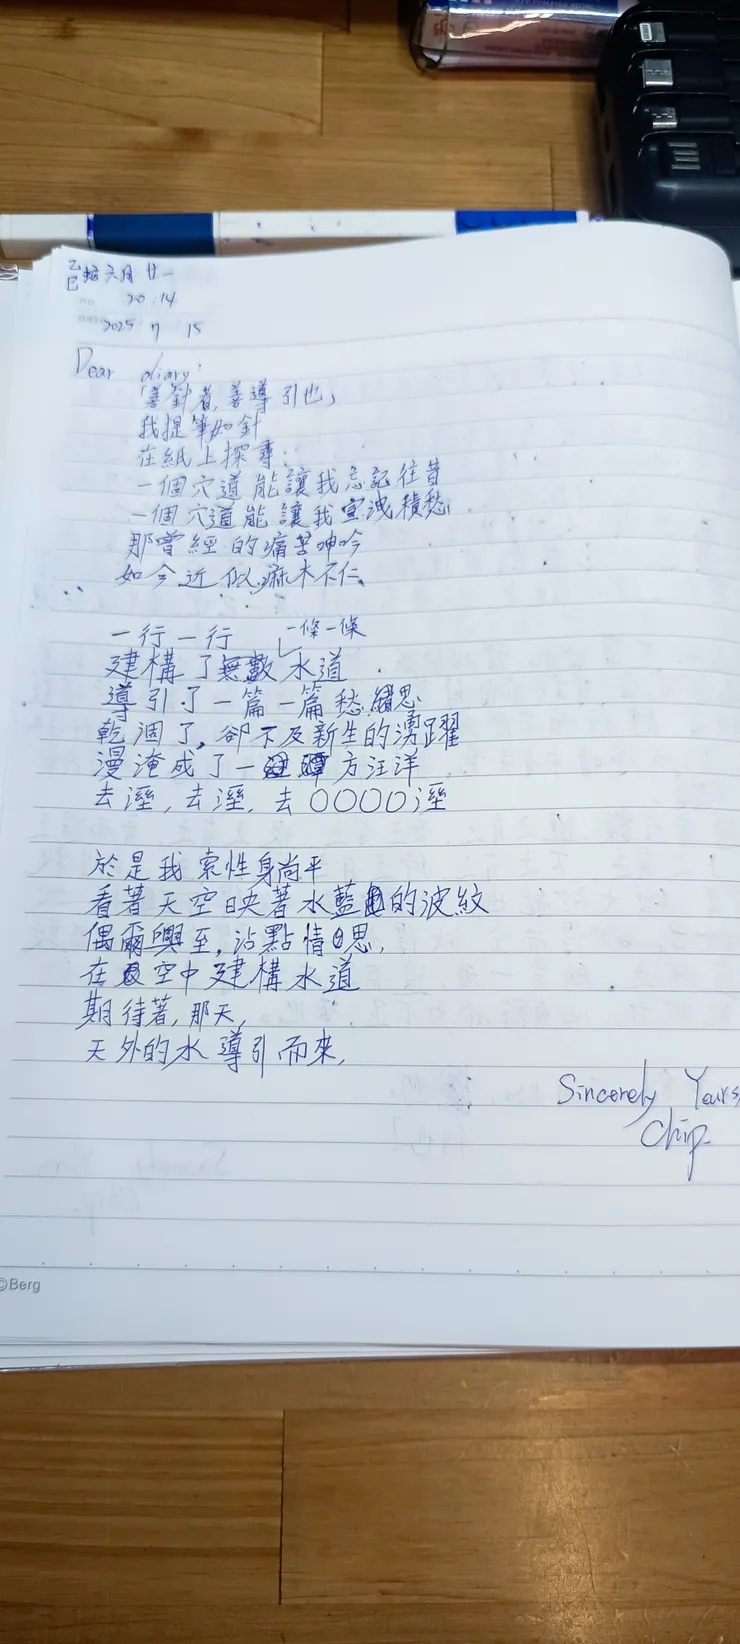 乙巳蛇六月廿一
20:14
2025 7 15
Dear diary:
「善針者,善導引也」
我提筆如針
在紙上探尋:
一個穴道能讓我忘記往昔
一個穴道能讓我宣洩積愁
那嘗經的痛苦呻吟
如今近似麻木不仁
一行一行 一條一條
建構了無數水道
導引了一篇一篇愁緒思
乾涸了,卻不及新生的湧躍
漫淹成了一方汪洋
去溼,去溼,去〇〇〇〇溼
於是我索性身躺平
看著天空映著水藍的波紋
偶爾興至,沾點情思,
在空中建構水道
期待著,那天,
天外的水導引而來,
Sincerely Yours,
Chip.
©Berg